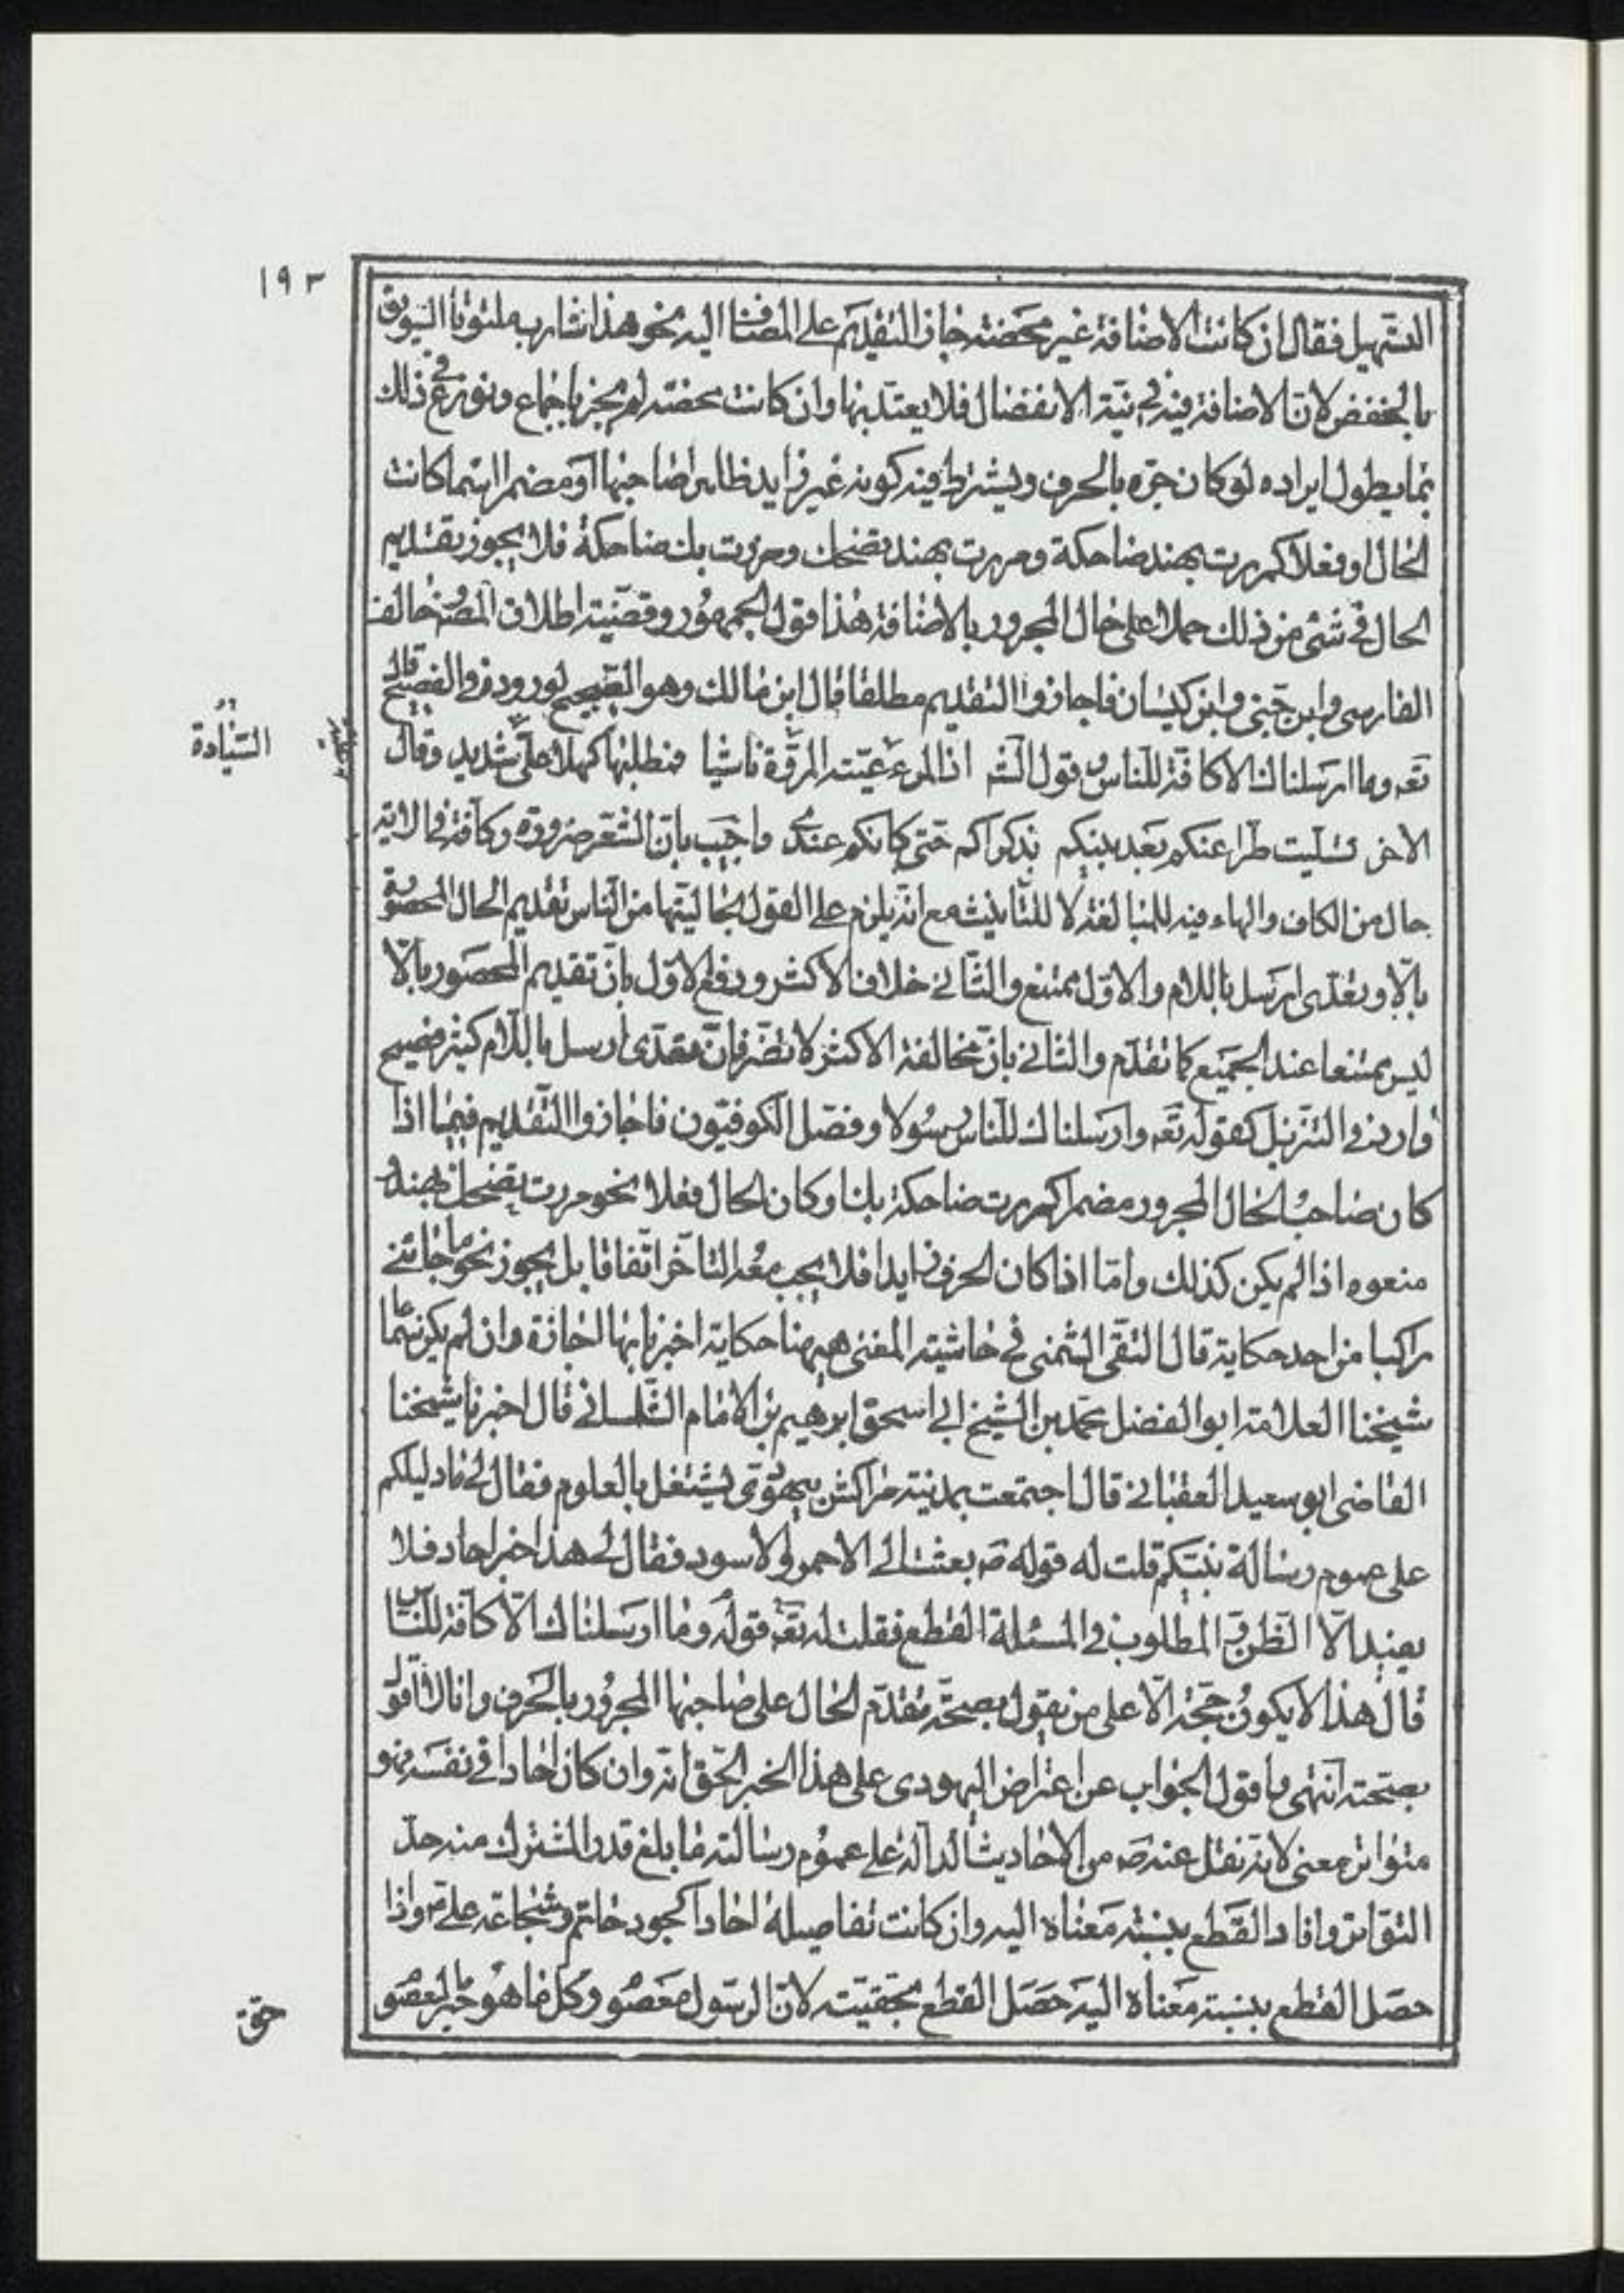 ١٩٣
التسهيل فقال ان كانت الاضافة غير محضة جاز التقديم على المضاف اليه نحو هذا شارب ملتوتا السويق
بالخفض لان الاضافة فيه في نية الانفصال فلا يعتد بها وان كانت محضة لم يجز باجماع ونوزع في ذلك
بما يطول ايراده لو كان جره بالحرف ويشترط فيه كونه غير زايد ظاهرا صاحبها او مضمرا اسما كانت
الحال او فعلا كمررت بهند ضاحكة ومررت بهند تضحك ومررت بك ضاحكة فلا يجوز تقديم
الحال في شئ من ذلك حملا على حال المجرور بالاضافة هذا قول الجمهور وقضيته اطلاق المصنف خالف
الفارسى وابن جنى وابن كيسان فاجازوا التقديم مطلقا قال ابن مالك وهو الصحيح لوروده في الفصيح قال
تعه وما ارسلناك الا كافة للناس وقول الشه اذا المرء عيته المروة ناشيا فمطلبها كهلا عليه شديد وقال
السيادة
الاخر تسليت طرا عنكم بعد بينكم بذكراكم حتى كانكم عندى واجيب بان الشعر ضرورة وكافة في الاية
حال من الكاف والهاء فيه للمبالغة لا للتأنيث مع انه يلزم على القول بحاليتها من الناس تقديم الحال المحصورة
بالا وتعدى ارسل باللام والاول ممتنع والثانى خلاف الاكثر ودفع الاول بان تقديم المحصور بالا
ليس ممتنعا عند الجميع كما تقدم والثانى بان مخالفة الاكثر لا تضر فان تعدى ارسل باللام كثير فصيح
وارد في التنزيل كقوله تعه وارسلناك للناس رسولا وفصل الكوفيون فاجازوا التقديم فيما اذا
كان صاحب الحال المجرور مضمرا كمررت ضاحكة بك او كان الحال فعلا نحو مررت تضحك بهند و
منعوه اذا لم يكن كذلك واما اذا كان الحرف زايدا فلا يجب معه التأخر اتفاقا بل يجوز نحو ما جائنى
راكبا من احد حكاية قال التقى الشمنى في حاشية المغنى هيهنا حكاية اخبرنا بها اجازة وان لم يكن سماعا
شيخنا العلامة ابو الفضل محمد بن الشيخ ابى اسحق ابرهيم بن الامام التلمسانى قال اخبرنا شيخنا
القاضى ابو سعيد العقبانى قال اجتمعت بمدينة مراكش بيهودى يشتغل بالعلوم فقال لى ما دليلكم
على عموم رسالة نبيكم قلت له قوله صه بعثت الى الاحمر والاسود فقال لى هذا خبر احاد فلا
يفيد الا الظن والمطلوب في المسئلة القطع فقلت له قوله تعه وما ارسلناك الا كافة للناس
قال هذا لا يكون حجة الا على من يقول بصحة تقدم الحال على صاحبها المجرور بالحرف وانا لا اقول
بصحته انتهى واقول الجواب عن اعتراض اليهودى على هذا الخبر الحق انه وان كان احادا في نفسه فهو
متواتر معنى لانه نقل عنه صه من الاحاديث الدالة على عموم رسالته ما بلغ قدر المشترك منه حد
التواتر وافاد القطع بنسبة معناه اليه وان كانت تفاصيله احادا كجود حاتم وشجاعة على ع واذا
حصل القطع بنسبة معناه اليه حصل القطع بحقيته لان الرسول معصوم وكل ما هو خبر المعصوم
حق